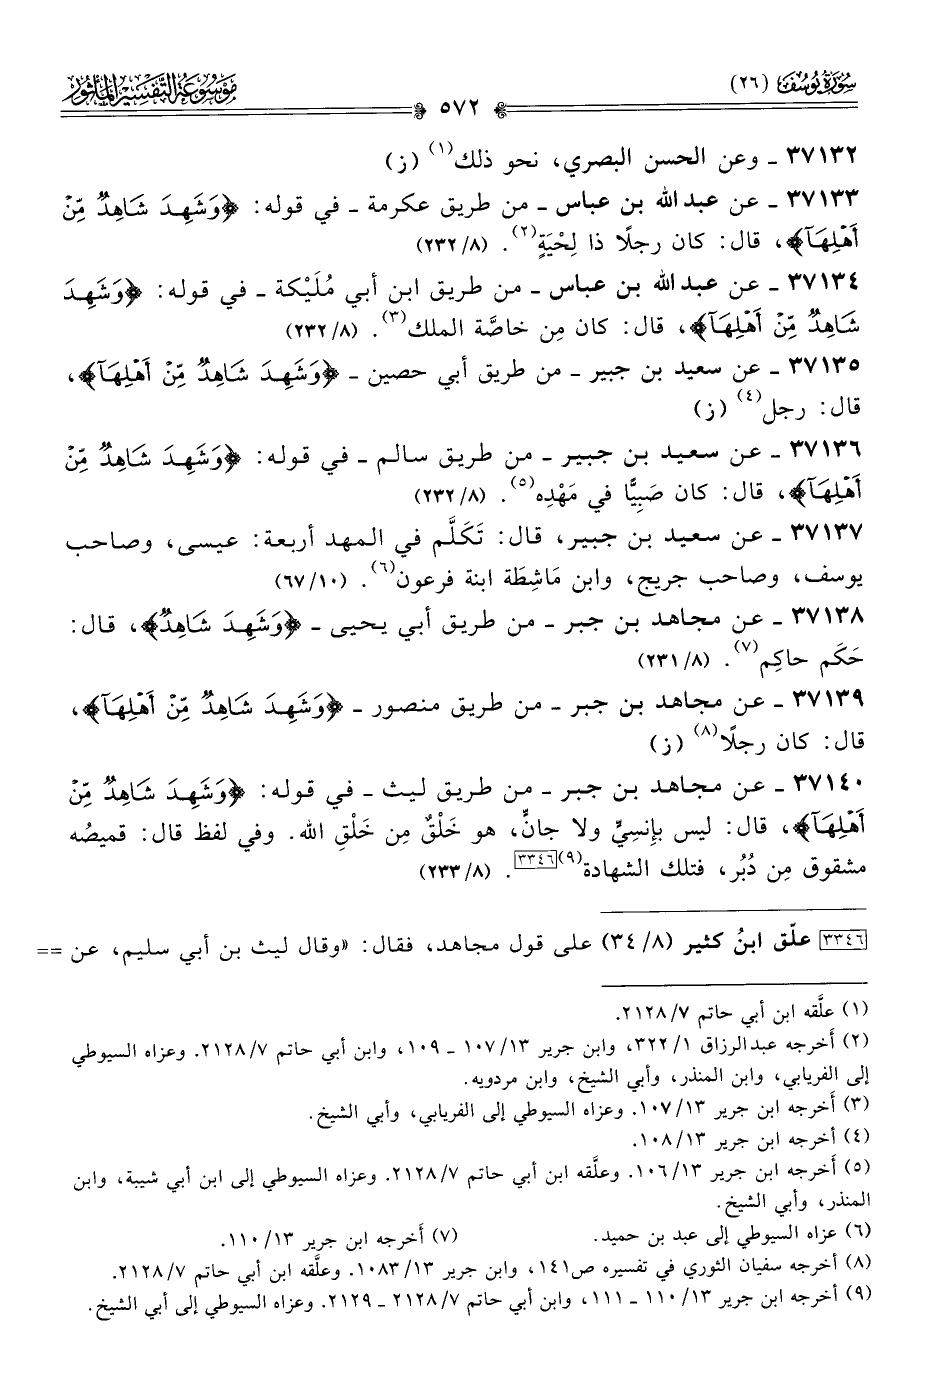 سُورَةُ يُوسُفَ (٢٦)
مَوْسُوعَةُ التَّفْسِيْرِ المَأْثُورِ
٥٧٢
٣٧١٣٢ ـ وعن الحسن البصري، نحو ذلك(١) (ز)
٣٧١٣٣ ـ عن عبد الله بن عباس ـ من طريق عكرمة ـ في قوله: ﴿وَشَهِدَ شَاهِدٌ مِّنْ
أَهْلِهَآ﴾، قال: كان رجلًا ذا لِحْيَةٍ(٢). (٢٣٢/٨)
٣٧١٣٤ ـ عن عبد الله بن عباس ـ من طريق ابن أبي مُلَيْكة ـ في قوله: ﴿وَشَهِدَ
شَاهِدٌ مِّنْ أَهْلِهَآ﴾، قال: كان مِن خاصَّة الملك(٣). (٢٣٢/٨)
٣٧١٣٥ ـ عن سعيد بن جبير ـ من طريق أبي حصين ـ ﴿وَشَهِدَ شَاهِدٌ مِّنْ أَهْلِهَآ﴾،
قال: رجل(٤) (ز)
٣٧١٣٦ ـ عن سعيد بن جبير ـ من طريق سالم ـ في قوله: ﴿وَشَهِدَ شَاهِدٌ مِّنْ
أَهْلِهَآ﴾، قال: كان صَبِيًّا في مَهْدِه(٥). (٢٣٢/٨)
٣٧١٣٧ ـ عن سعيد بن جبير، قال: تَكَلَّم في المهد أربعة: عيسى، وصاحب
يوسف، وصاحب جريج، وابن مَاشِطَة ابنة فرعون(٦). (٦٧/١٠)
٣٧١٣٨ ـ عن مجاهد بن جبر ـ من طريق أبي يحيى ـ ﴿وَشَهِدَ شَاهِدٌ﴾، قال:
حَكَم حاكِم(٧). (٢٣١/٨)
٣٧١٣٩ ـ عن مجاهد بن جبر ـ من طريق منصور ـ ﴿وَشَهِدَ شَاهِدٌ مِّنْ أَهْلِهَآ﴾،
قال: كان رجلًا(٨) (ز)
٣٧١٤٠ ـ عن مجاهد بن جبر ـ من طريق ليث ـ في قوله: ﴿وَشَهِدَ شَاهِدٌ مِّنْ
أَهْلِهَآ﴾، قال: ليس بإِنسِيٍّ ولا جانٍّ، هو خَلْقٌ مِن خَلْقِ الله. وفي لفظ قال: قميصُه
مشقوق مِن دُبُر، فتلك الشهادة(٩)[٣٣٤٦]. (٢٣٣/٨)
[٣٣٤٦] علّق ابنُ كثير (٣٤/٨) على قول مجاهد، فقال: «وقال ليث بن أبي سليم، عن ==
(١) علَّقه ابن أبي حاتم ٢١٢٨/٧.
(٢) أخرجه عبد الرزاق ٣٢٢/١، وابن جرير ١٠٧/١٣ ـ ١٠٩، وابن أبي حاتم ٢١٢٨/٧. وعزاه السيوطي
إلى الفريابي، وابن المنذر، وأبي الشيخ، وابن مردويه.
(٣) أخرجه ابن جرير ١٠٧/١٣. وعزاه السيوطي إلى الفريابي، وأبي الشيخ.
(٤) أخرجه ابن جرير ١٠٨/١٣.
(٥) أخرجه ابن جرير ١٠٦/١٣. وعلَّقه ابن أبي حاتم ٢١٢٨/٧. وعزاه السيوطي إلى ابن أبي شيبة، وابن
المنذر، وأبي الشيخ.
(٦) عزاه السيوطي إلى عبد بن حميد. (٧) أخرجه ابن جرير ١١٠/١٣.
(٨) أخرجه سفيان الثوري في تفسيره ص١٤١، وابن جرير ١٠٨٣/١٣. وعلَّقه ابن أبي حاتم ٢١٢٨/٧.
(٩) أخرجه ابن جرير ١١٠/١٣ ـ ١١١، وابن أبي حاتم ٢١٢٨/٧ ـ ٢١٢٩. وعزاه السيوطي إلى أبي الشيخ.